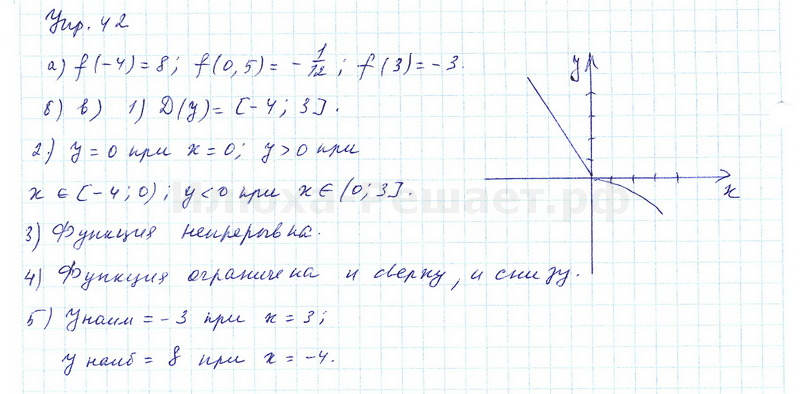 Упр. 42
а) f(-4)=8; f(0,5) = -1/12; f(3)=-3.
б) в) 1) D(y)=[-4; 3].
2) y=0 при x=0; y>0 при
x∈[-4; 0); y<0 при x∈(0; 3].
3) Функция непрерывна.
4) Функция ограничена и сверху, и снизу.
5) yнаим = -3 при x=3;
yнаиб = 8 при x=-4.
y
x